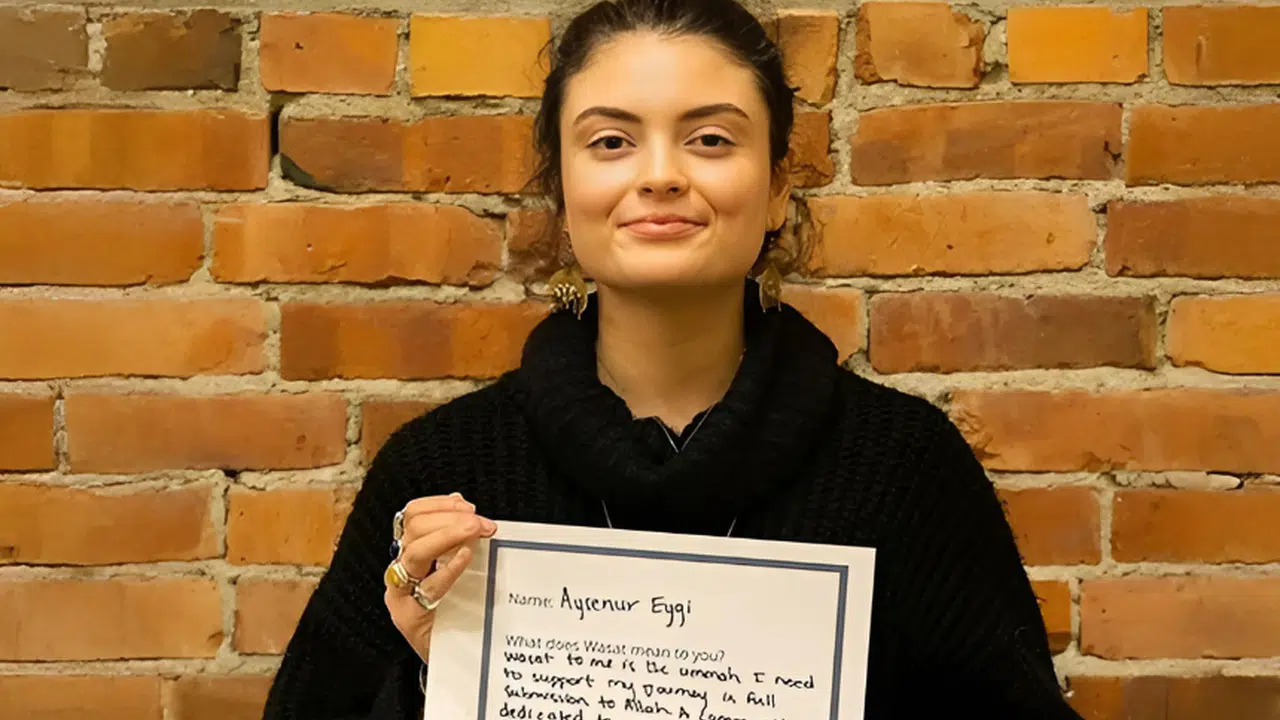 Name: Aysenur Eygi
What does Wasat mean to you?
Wasat to me is the ummah I need
to support my journey in full
submission to Allah A
dedicated to